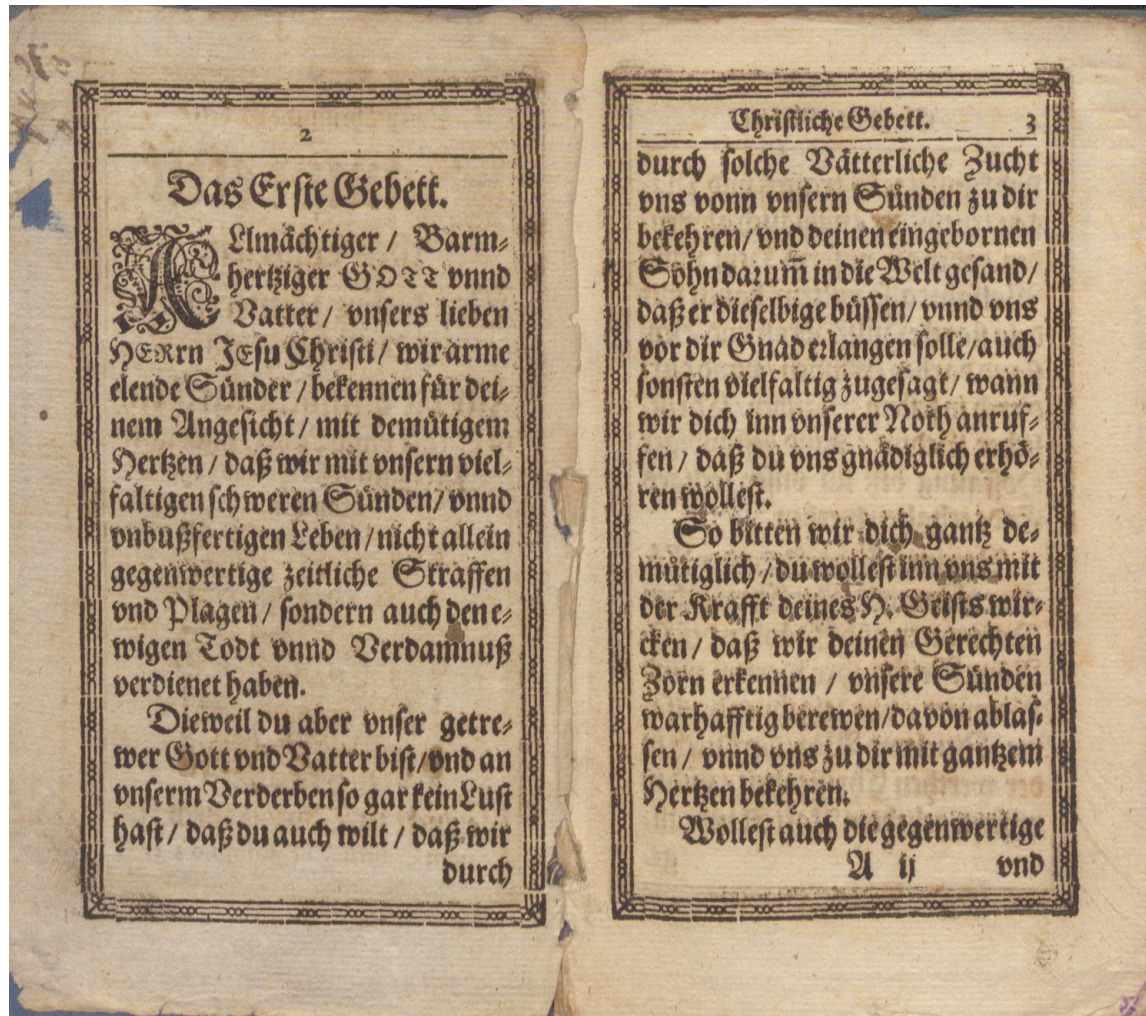 2
Das Erste Gebett.
ALlmächtiger / Barm-
hertziger GOTT vnnd
Vatter / vnsers lieben
HERrn JEsu Christi / wir arme
elende Sünder / bekennen für dei-
nem Angesicht / mit demütigem
Hertzen / daß wir mit vnsern viel-
faltigen schweren Sünden / vnnd
vnbußfertigen Leben / nicht allein
gegenwertige zeitliche Straffen
vnd Plagen / sondern auch den e-
wigen Todt vnnd Verdamnuß
verdienet haben.
Dieweil du aber vnser getre-
wer Gott vnd Vatter bist / vnd an
vnserm Verderben so gar kein Lust
hast / daß du auch wilt / daß wir
durch
Christliche Gebett. 3
durch solche Vätterliche Zucht
vns vonn vnsern Sünden zu dir
bekehren / vnd deinen eingebornen
Sohn darum̃ in die Welt gesand /
daß er dieselbige büssen / vnnd vns
vor dir Gnad erlangen solle / auch
sonsten vielfaltig zugesagt / wann
wir dich inn vnserer Noth anruf-
fen / daß du vns gnädiglich erhö-
ren wollest.
So bitten wir dich gantz de-
mütiglich / du wollest inn vns mit
der Krafft deines H. Geists wir-
cken / daß wir deinen Gerechten
Zorn erkennen / vnsere Sünden
warhafftig berewen / davon ablas-
sen / vnnd vns zu dir mit gantzem
Hertzen bekehren.
Wollest auch die gegenwertige
A ij vnd